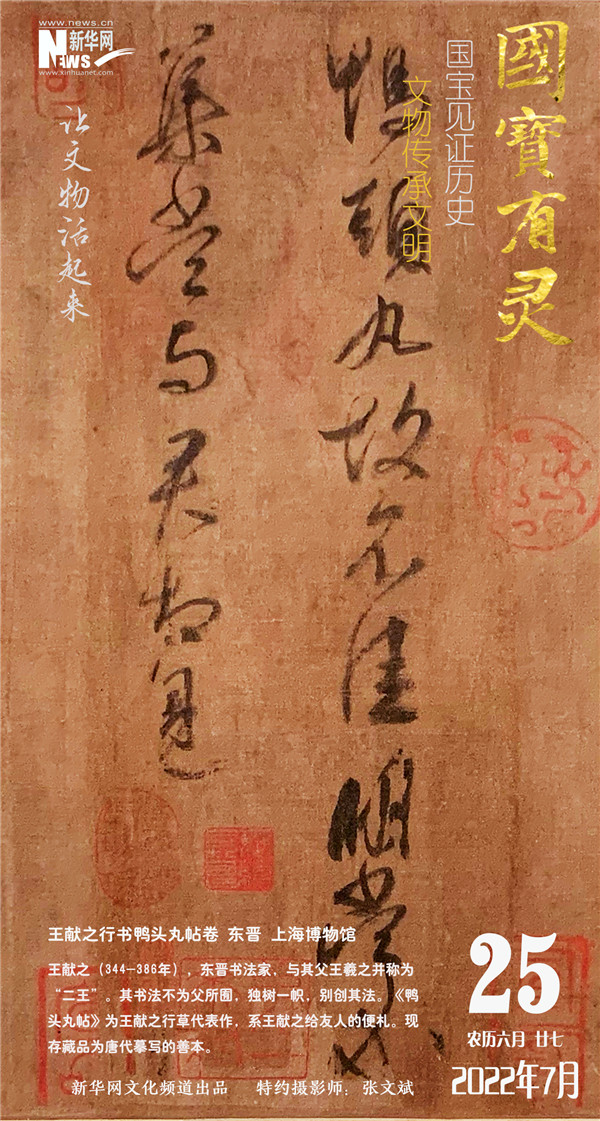 www.news.cn
新华网
NEWS
www.xinhuanet.com
國寶有灵
国宝见证历史
文物传承文明
鴨頭丸故不佳明當必
集當与君相見
让文物活起来
王献之行书鸭头丸帖卷 东晋 上海博物馆
王献之（344—386年），东晋书法家，与其父王羲之并称为
“二王”。其书法不为父所囿，独树一帜，别创其法。《鸭
头丸帖》为王献之行草代表作，系王献之给友人的便札。现
存藏品为唐代摹写的善本。
新华网文化频道出品 特约摄影师：张文斌
25
农历六月 廿七
2022年7月